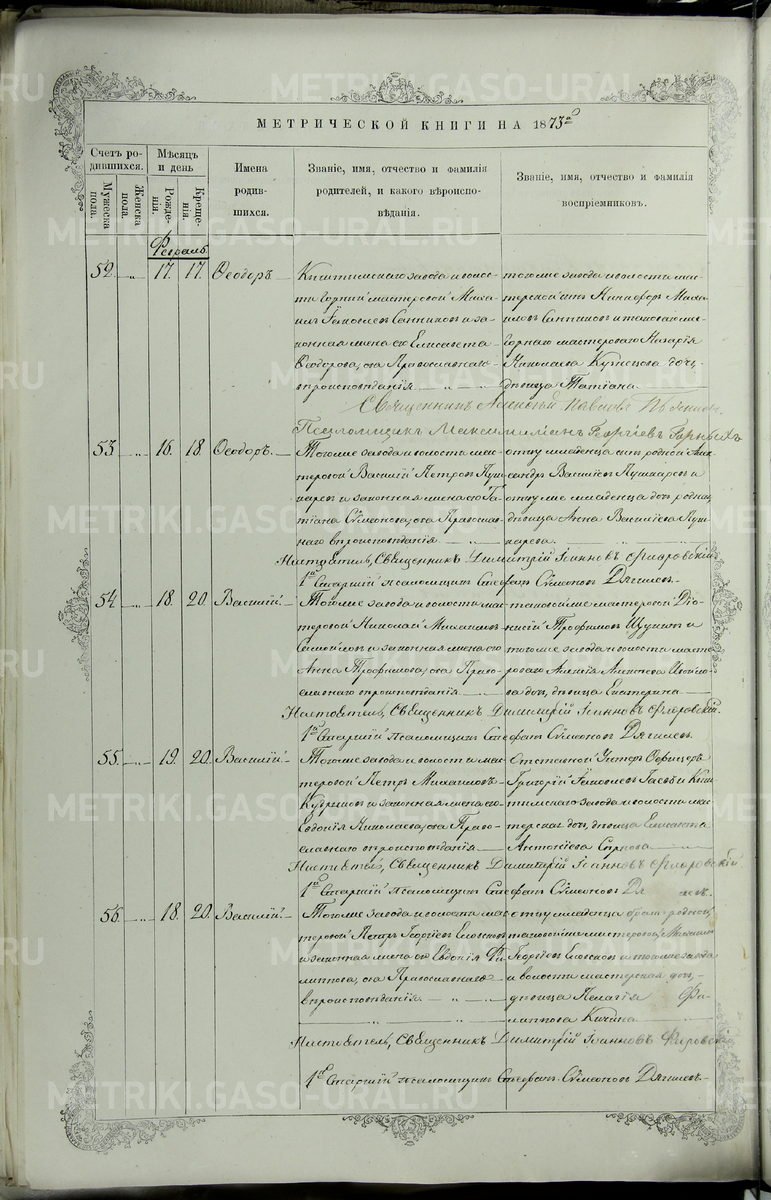 МЕТРИЧЕСКОЙ КНИГИ НА 1873 г
Счетъ родившихся.
Мужеска пола.
Женска пола.
Мѣсяцъ и день
Рожденія.
Крещенія.
Имена родившихся.
Званіе, имя, отчество и фамилія родителей, и какого вѣроисповѣданія.
Званіе, имя, отчество и фамилія воспріемниковъ.
Февраль
52. „ 17. 17. Ѳеодоръ
Кыштымскаго завода и волости горный мастеровой Михаилъ Яковлевъ Санниковъ и законная жена его Елисавета Ѳеодорова, оба Православнаго вѣроисповѣданія
тогоже завода и волости мастерской сынъ Никифоръ Михайловъ Санниковъ и таковагоже горнаго мастероваго Назарія Николаева Кузнецова дочь, дѣвица Татіана
Священникъ Алексѣй Павловъ
Псаломщикъ Максимиліанъ Георгіевъ
53 „ 16. 18. Ѳеодоръ.
Тогоже завода и волости мастеровой Василій Петровъ Пушкаревъ и законная жена его Татіана Сѵмеонова, оба Православнаго вѣроисповѣданія
отцу младенца сынъ родной Александръ Василіевъ Пушкаревъ и отцу же младенца дочь родная, дѣвица Анна Василіева Пушкарева.
Настоятель, Священникъ Димитрій Іоанновъ Флоровскій.
1й Старшій псаломщикъ Стефанъ Сѵмеоновъ Дягилевъ.
54 „ 18. 20. Василій.
Тогоже завода и волости мастеровой Николай Михаиловъ и законная жена его Анна Трофимова, оба Православнаго вѣроисповѣданія
таковойже мастеровой Діонисій Трофимовъ Щукинъ и тогоже завода и волости мастероваго дочь, дѣвица Екатерина
Настоятель, Священникъ Димитрій Іоанновъ Флоровскій.
1й Старшій псаломщикъ Стефанъ Сѵмеоновъ Дягилевъ.
55. „ 19. 20. Василій
Тогоже завода и волости мастеровой Петръ Михаиловъ и законная жена его Евдокія Николаева, оба Православнаго вѣроисповѣданія
Отставной Унтеръ Офицеръ Григорій Яковлевъ и Кыштымскаго завода и волости мастерская дочь, дѣвица Елисавета Антоніева
Настоятель, Священникъ Димитрій Іоанновъ Флоровскій
1й Старшій псаломщикъ Стефанъ Сѵмеоновъ
56 „ 18. 20. Василій.
Тогоже завода и волости мастеровой Петръ Георгіевъ Еловсковъ и законная жена его Евдокія Филиппова, оба Православнаго вѣроисповѣданія.
отцу младенца братъ родной, таковойже мастеровой, Михаилъ Георгіевъ и тогоже завода и волости мастерская дочь, дѣвица Пелагія Филиппова Кичина
Настоятель, Священникъ Димитрій Іоанновъ Флоровскій
1й Старшій псаломщикъ Стефанъ Сѵмеоновъ Дягилевъ.
METRIKI.GASO-URAL.RU